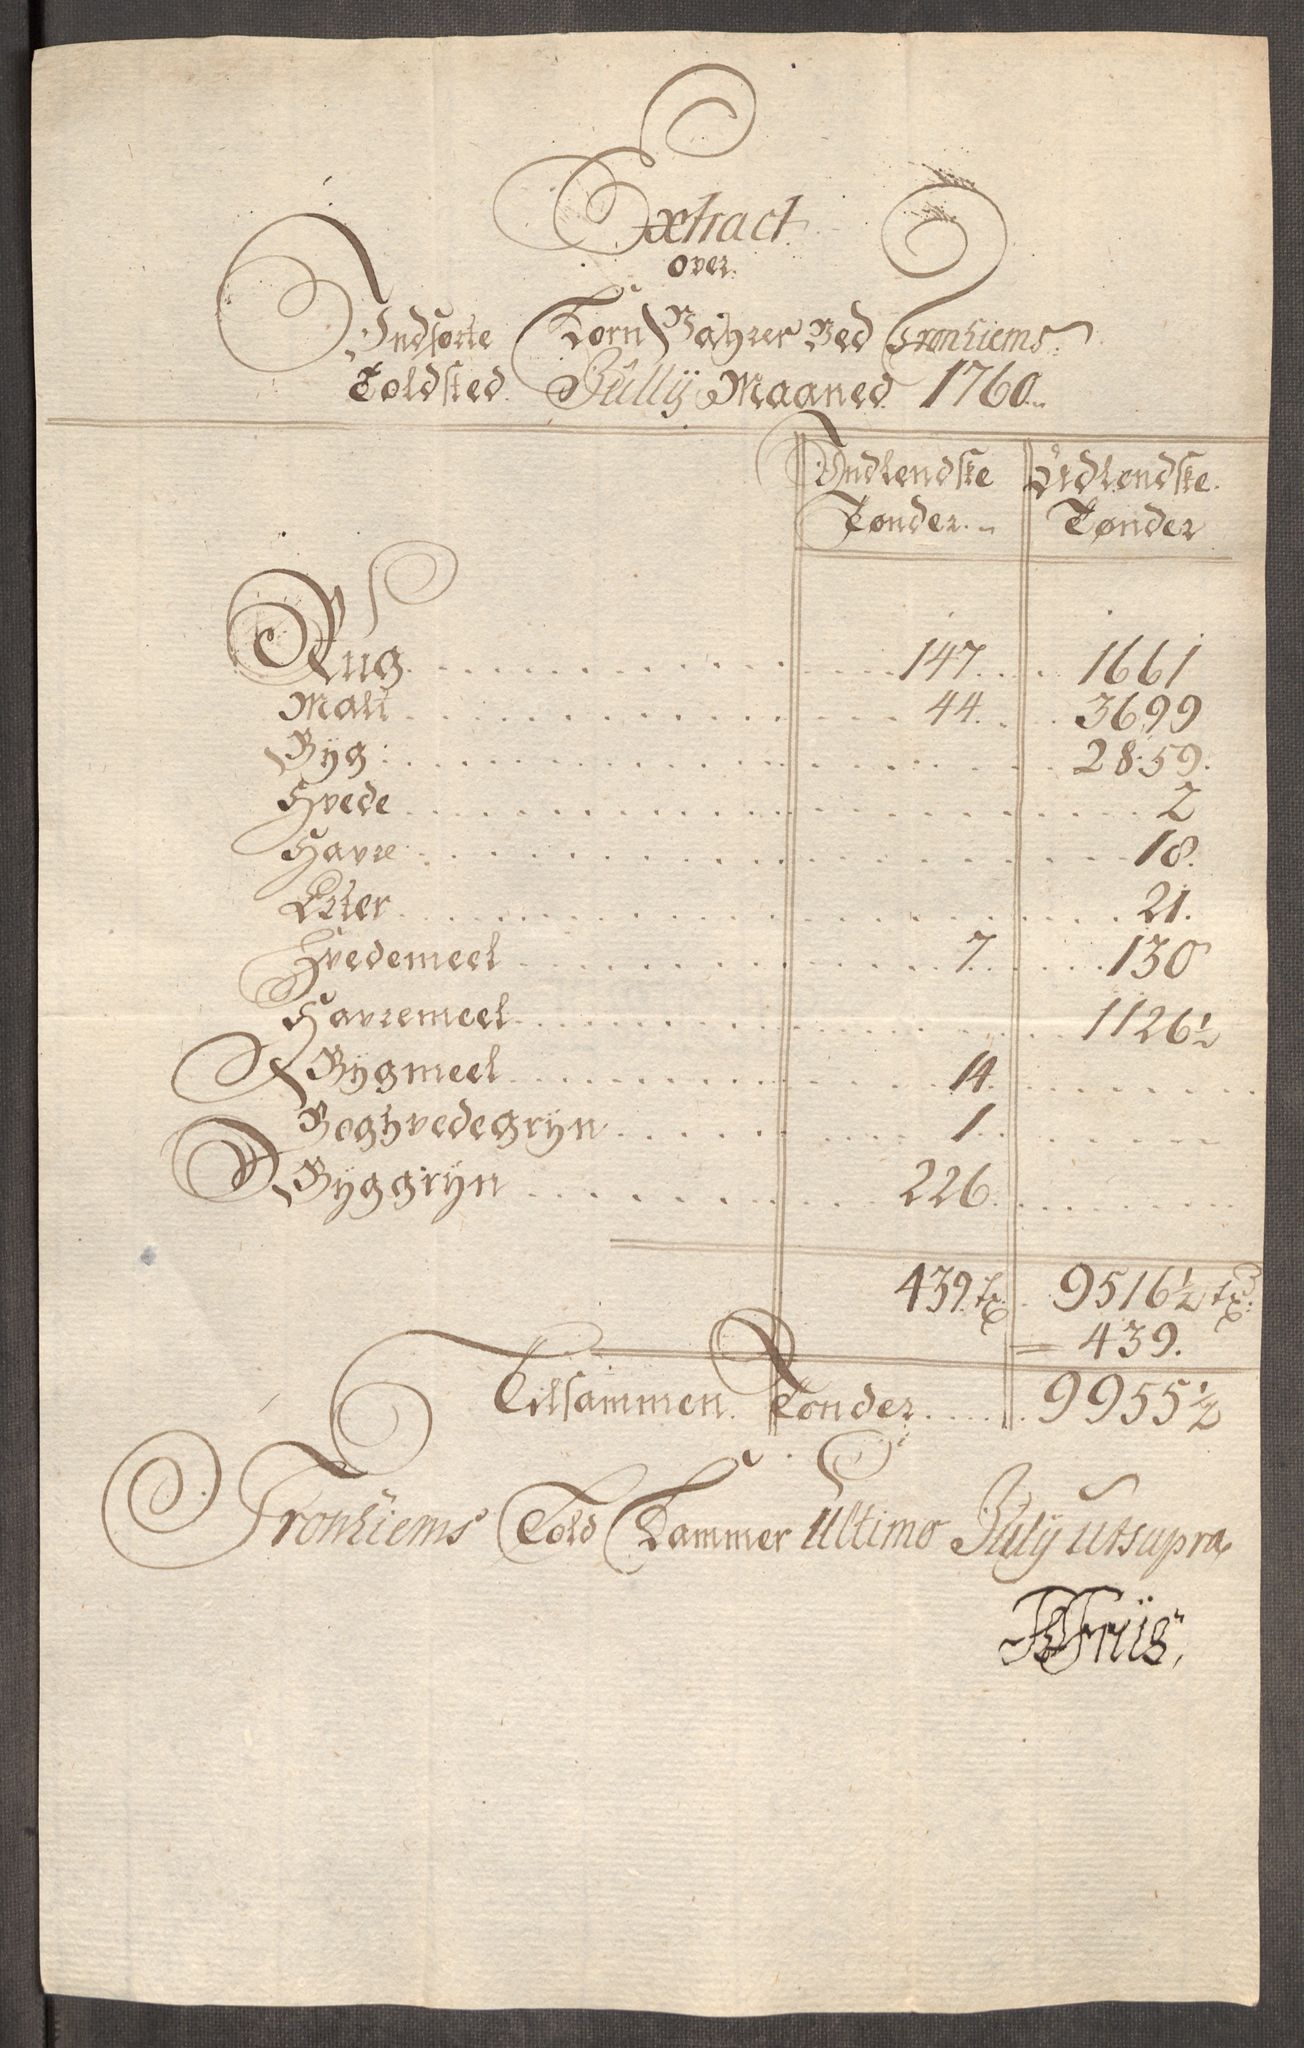 Extract
over
Indførte Korn Vahrer Ved Tronhiems
Toldsted Jully Maaned 1760
Indlendske Udlendske
Tønder Tønder
Rug 147 1661
Malt 44 3699
Byg 2859
Hvede 2
Havre 18
Erter 21
Hvedemeel 7 130
Havremeel 1126 1/2
Bygmeel 14
Boghvedegryn 1
Byggryn 226
439 9516 1/2
439
Tilsammen Tønder 9955 1/2
Tronhiems Told Kammer Ultimo July utsupra
Friis